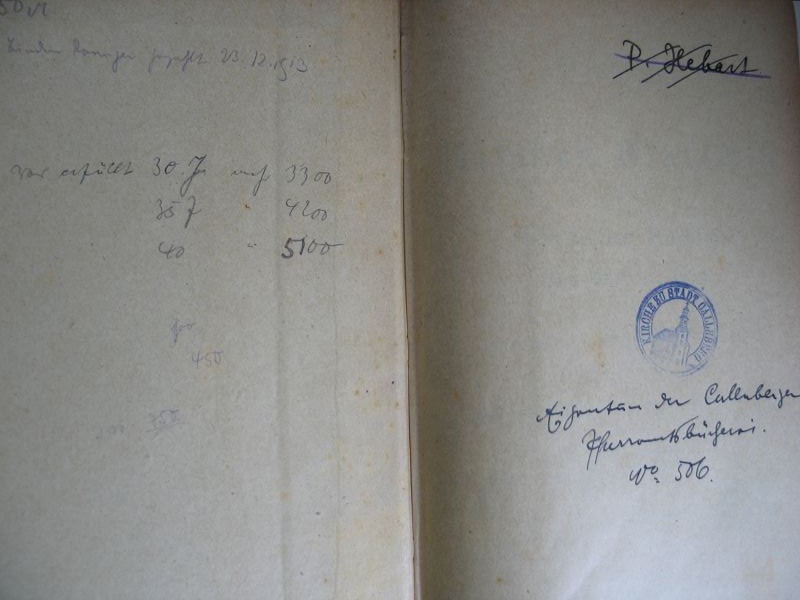 50 M
gezahlt 23.12.1913
vor erfüllt 30. J. auf 3300
35 J " 4200
40 " 5100
450
P. Hebart
KIRCHE ZU STADT CALLNBERG
Eigentum der Callnberger
Pfarramtsbücherei.
No. 506.